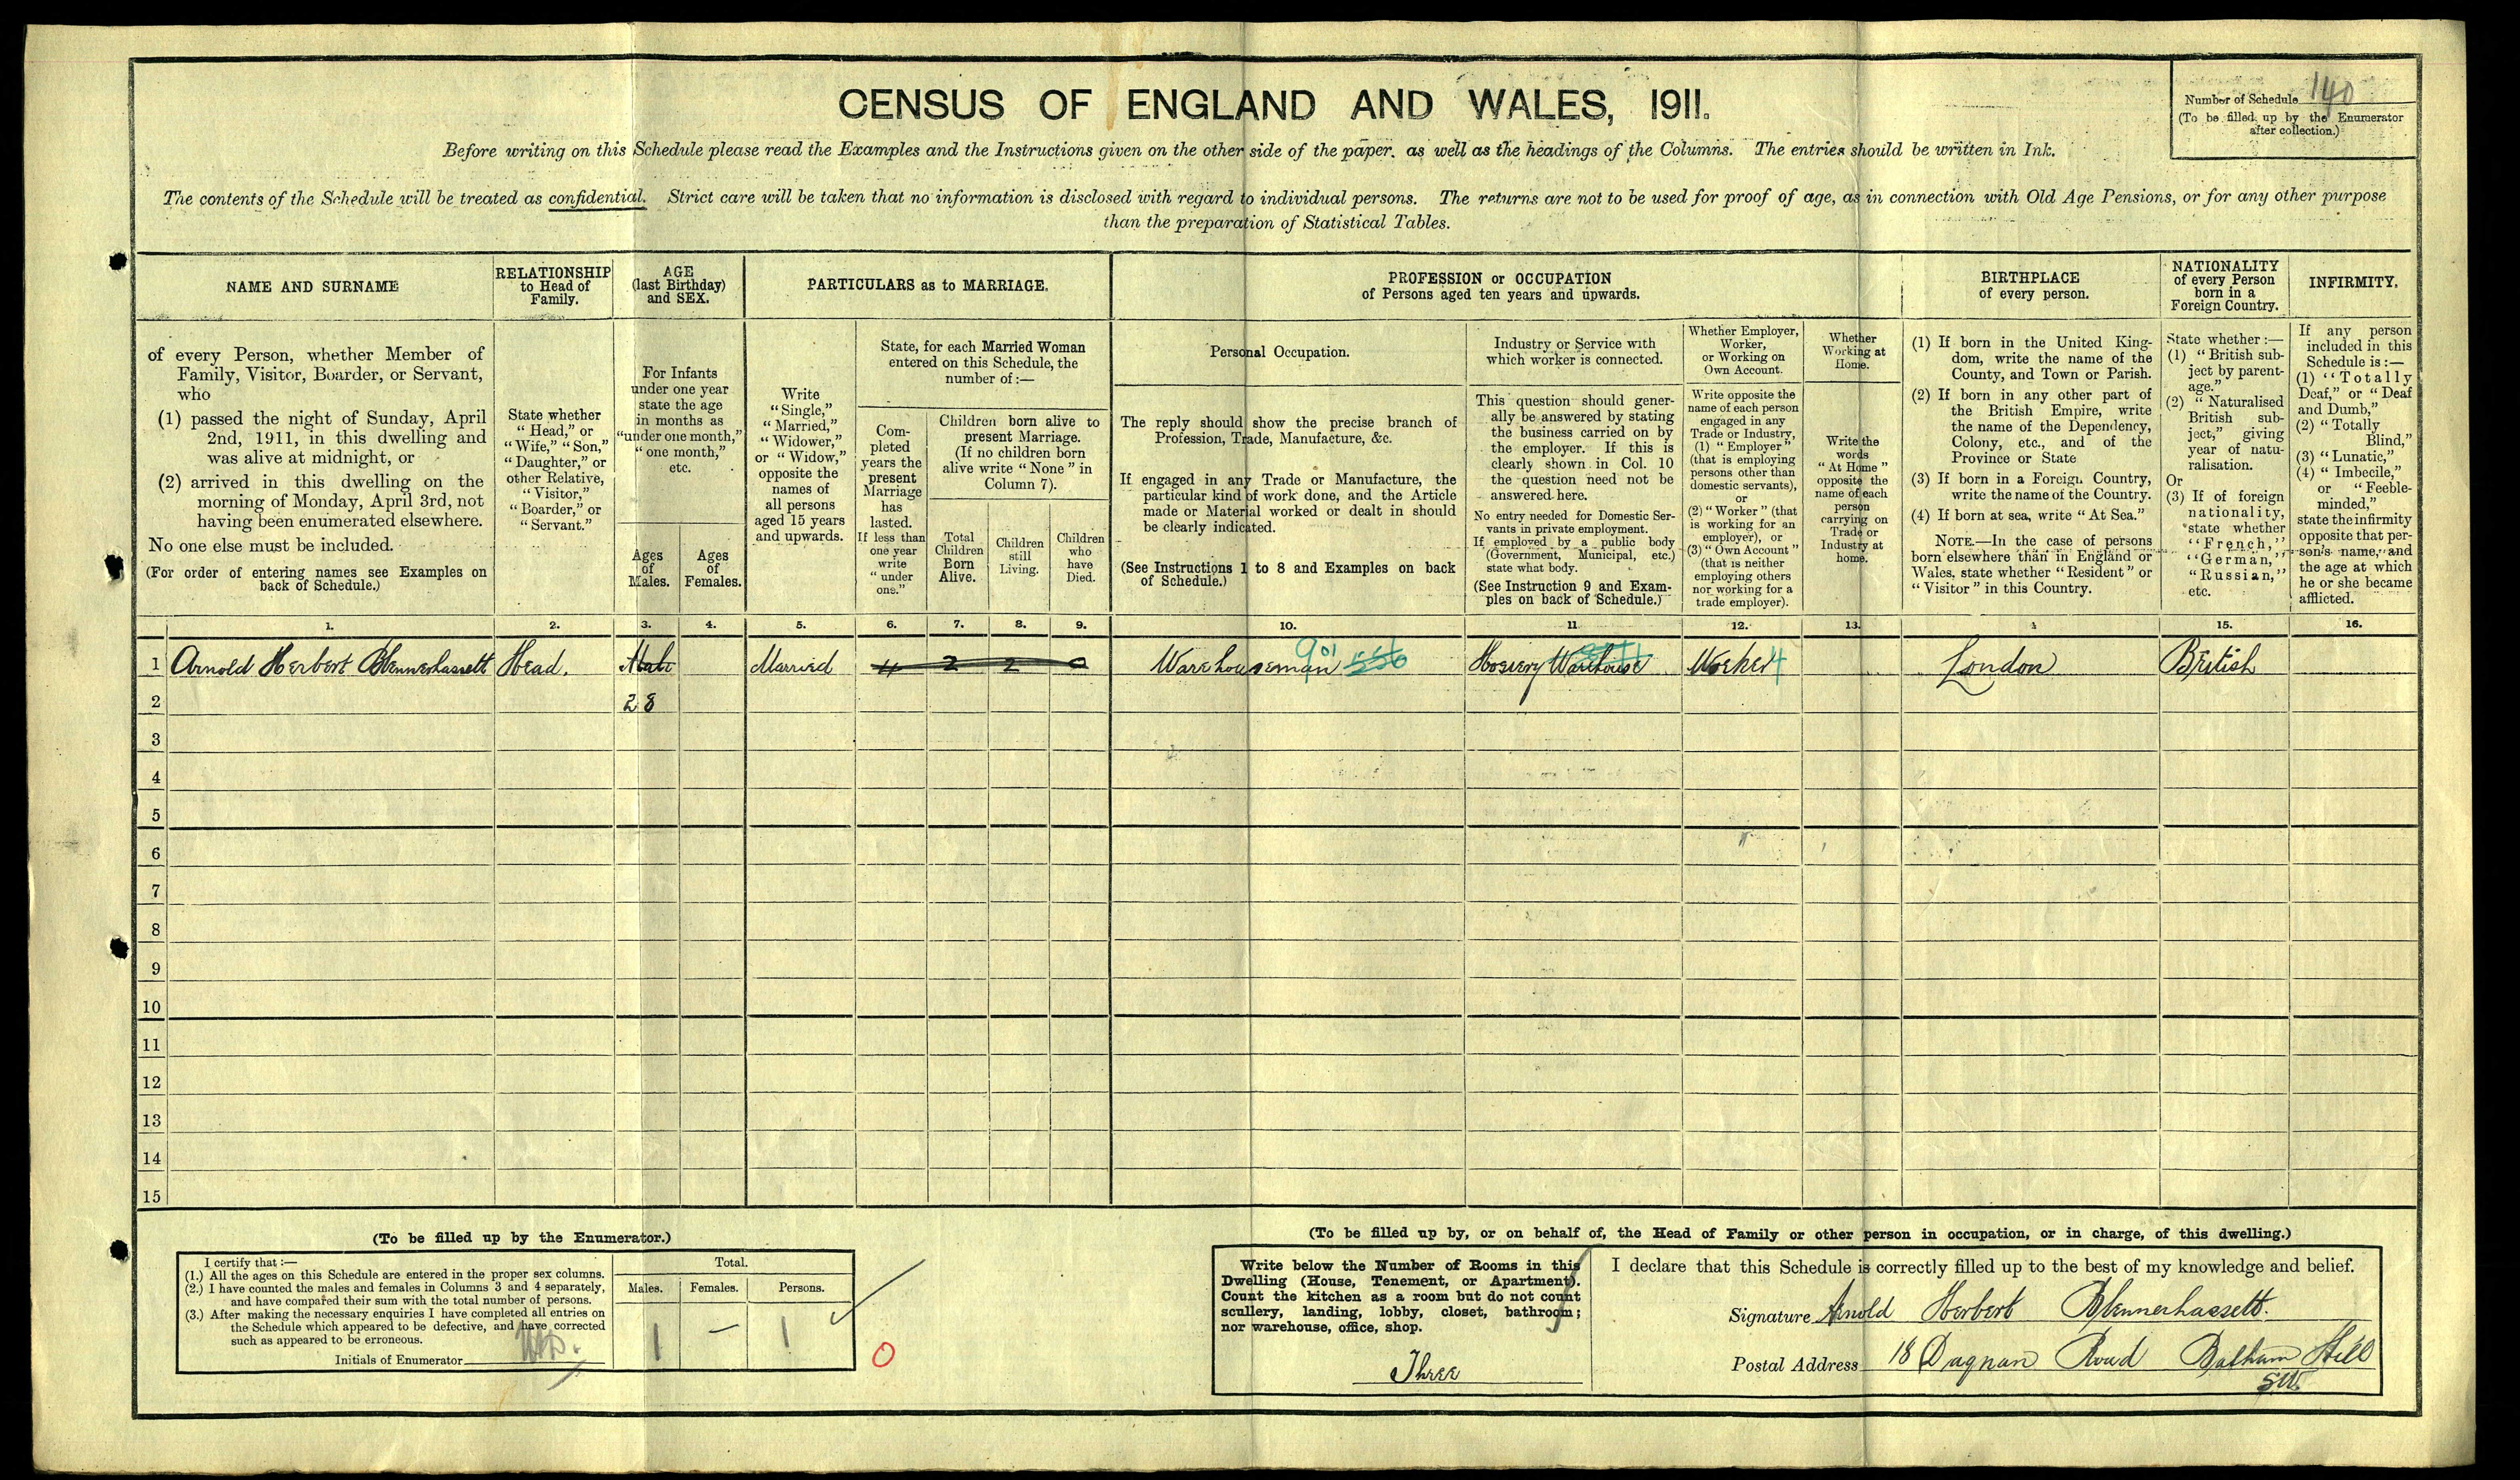 CENSUS OF ENGLAND AND WALES, 1911.
Number of Schedule 140
(To be filled up by the Enumerator
after collection.)
Before writing on this Schedule please read the Examples and the Instructions given on the other side of the paper, as well as the headings of the Columns. The entries should be written in Ink.
The contents of the Schedule will be treated as confidential. Strict care will be taken that no information is disclosed with regard to individual persons. The returns are not to be used for proof of age, as in connection with Old Age Pensions, or for any other purpose
than the preparation of Statistical Tables.
NAME AND SURNAME
of every Person, whether Member of
Family, Visitor, Boarder, or Servant,
who
(1) passed the night of Sunday, April
2nd, 1911, in this dwelling and
was alive at midnight, or
(2) arrived in this dwelling on the
morning of Monday, April 3rd, not
having been enumerated elsewhere.
No one else must be included.
(For order of entering names see Examples on
back of Schedule.)
RELATIONSHIP
to Head of
Family.
State whether
"Head," or
"Wife," "Son,"
"Daughter," or
other Relative,
"Visitor,"
"Boarder," or
"Servant."
AGE
(last Birthday)
and SEX.
For Infants
under one year
state the age
in months as
"under one month,"
"one month,"
etc.
Ages
of
Males.
Ages
of
Females.
PARTICULARS as to MARRIAGE.
Write
"Single,"
"Married,"
"Widower,"
or "Widow,"
opposite the
names of
all persons
aged 15 years
and upwards.
State, for each Married Woman
entered on this Schedule, the
number of :—
Com-
pleted
years the
present
Marriage
has
lasted.
If less than
one year
write
"under
one."
Children born alive to
present Marriage.
(If no children born
alive write "None" in
Column 7).
Total
Children
Born
Alive.
Children
still
Living.
Children
who
have
Died.
PROFESSION or OCCUPATION
of Persons aged ten years and upwards.
Personal Occupation.
The reply should show the precise branch of
Profession, Trade, Manufacture, &c.
If engaged in any Trade or Manufacture, the
particular kind of work done, and the Article
made or Material worked or dealt in should
be clearly indicated.
(See Instructions 1 to 8 and Examples on back
of Schedule.)
Industry or Service with
which worker is connected.
This question should gener-
ally be answered by stating
the business carried on by
the employer. If this is
clearly shown in Col. 10
the question need not be
answered here.
No entry needed for Domestic Ser-
vants in private employment.
If employed by a public body
(Government, Municipal, etc.)
state what body.
(See Instruction 9 and Exam-
ples on back of Schedule.)
Whether Employer,
Worker,
or Working on
Own Account.
Write opposite the
name of each person
engaged in any
Trade or Industry,
(1) "Employer"
(that is employing
persons other than
domestic servants),
or
(2) "Worker" (that
is working for an
employer), or
(3) "Own Account"
(that is neither
employing others
nor working for a
trade employer).
Whether
Working at
Home.
Write the
words
"At Home"
opposite the
name of each
person
carrying on
Trade or
Industry at
home.
BIRTHPLACE
of every person.
(1) If born in the United King-
dom, write the name of the
County, and Town or Parish.
(2) If born in any other part of
the British Empire, write
the name of the Dependency,
Colony, etc., and of the
Province or State
(3) If born in a Foreign Country,
write the name of the Country.
(4) If born at sea, write "At Sea."
NOTE.—In the case of persons
born elsewhere than in England or
Wales, state whether "Resident" or
"Visitor" in this Country.
NATIONALITY
of every Person
born in a
Foreign Country.
State whether :—
(1) "British sub-
ject by parent-
age."
(2) "Naturalised
British sub-
ject," giving
year of natu-
ralisation.
Or
(3) If of foreign
nationality,
state whether
"French,"
"German,"
"Russian,"
etc.
INFIRMITY.
If any person
included in this
Schedule is :—
(1) "Totally
Deaf," or "Deaf
and Dumb,"
(2) "Totally
Blind,"
(3) "Lunatic,"
(4) "Imbecile,"
or "Feeble-
minded,"
state the infirmity
opposite that per-
son's name, and
the age at which
he or she became
afflicted.
1. 2. 3. 4. 5. 6. 7. 8. 9. 10. 11 12. 13. 15. 16.
1 Arnold Herbert Blennerhassett Head. Male Married 4 2 2 0 Warehouseman 901 Hosiery Warehouse Worker 4 London British
2 28
3
4
5
6
7
8
9
10
11
12
13
14
15
(To be filled up by the Enumerator.)
I certify that :—
(1.) All the ages on this Schedule are entered in the proper sex columns.
(2.) I have counted the males and females in Columns 3 and 4 separately,
and have compared their sum with the total number of persons.
(3.) After making the necessary enquiries I have completed all entries on
the Schedule which appeared to be defective, and have corrected
such as appeared to be erroneous.
Initials of Enumerator
Total.
Males. Females. Persons.
1 — 1
0
(To be filled up by, or on behalf of, the Head of Family or other person in occupation, or in charge, of this dwelling.)
Write below the Number of Rooms in this
Dwelling (House, Tenement, or Apartment).
Count the kitchen as a room but do not count
scullery, landing, lobby, closet, bathroom;
nor warehouse, office, shop.
Three
I declare that this Schedule is correctly filled up to the best of my knowledge and belief.
Signature Arnold Herbert Blennerhassett.
Postal Address 18 Dagnan Road Balham Hill
SW